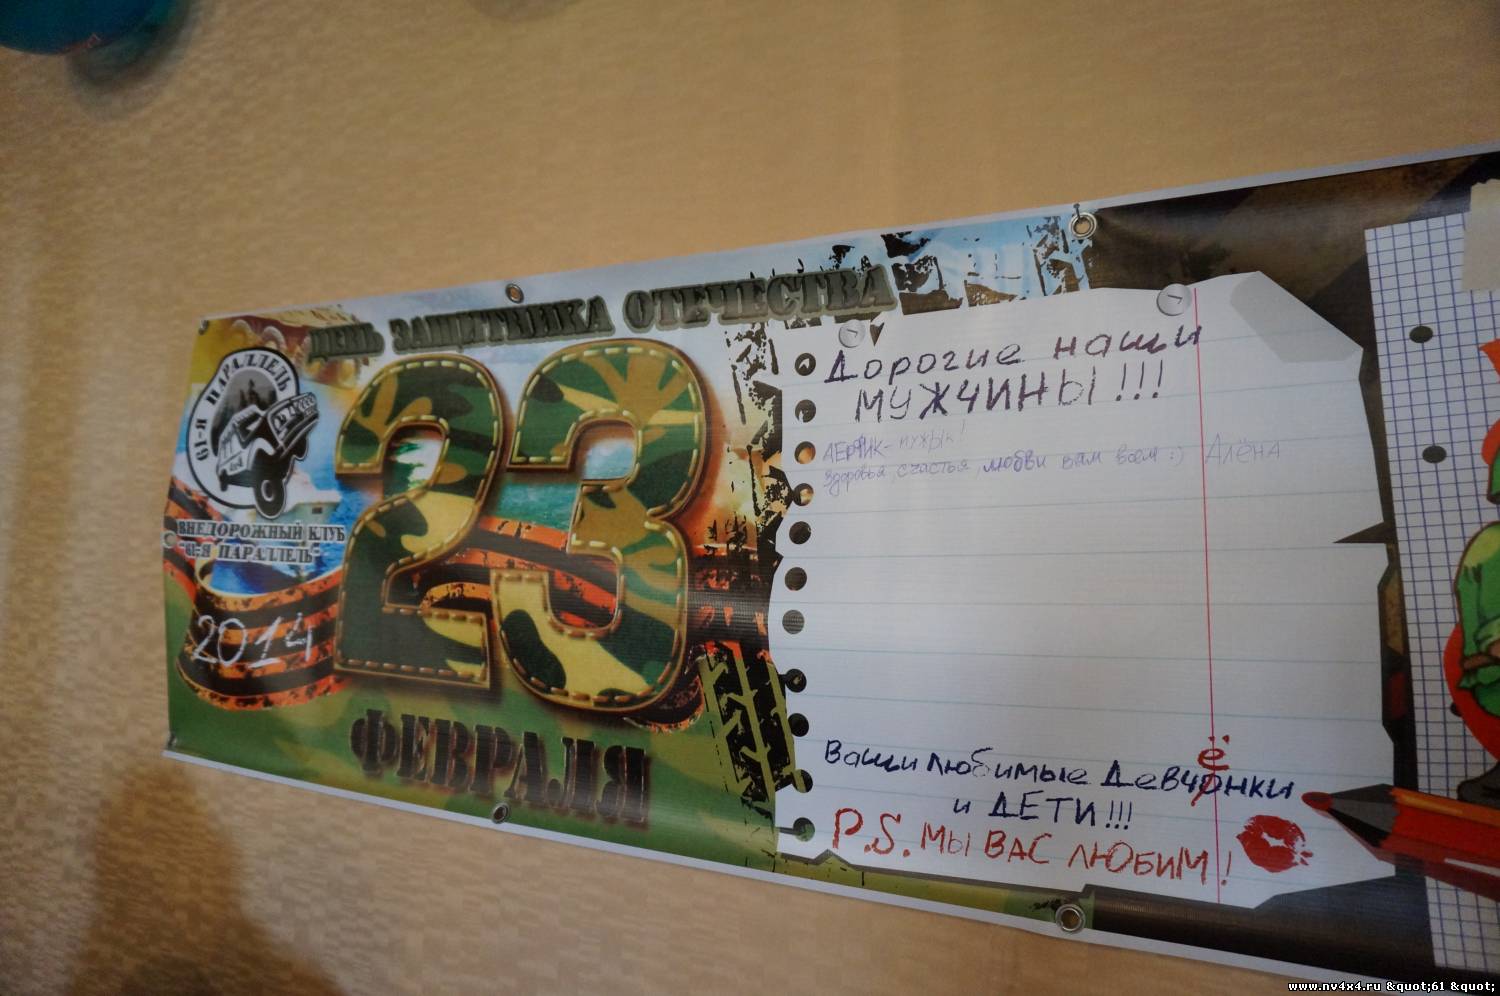 ДЕНЬ ЗАЩИТНИКА ОТЕЧЕСТВА
61-Я ПАРАЛЛЕЛЬ
4x4
ВНЕДОРОЖНЫЙ КЛУБ
"61-Я ПАРАЛЛЕЛЬ"
2014
23
ФЕВРАЛЯ
Дорогие наши
МУЖЧИНЫ!!!
мужык!
здоровья, счастья, любви вам всем :) Алёна
Ваши любимые девчонки
ё
и ДЕТИ!!!
P.S. МЫ ВАС ЛЮБИМ!
www.nv4x4.ru &quot;61 &quot;